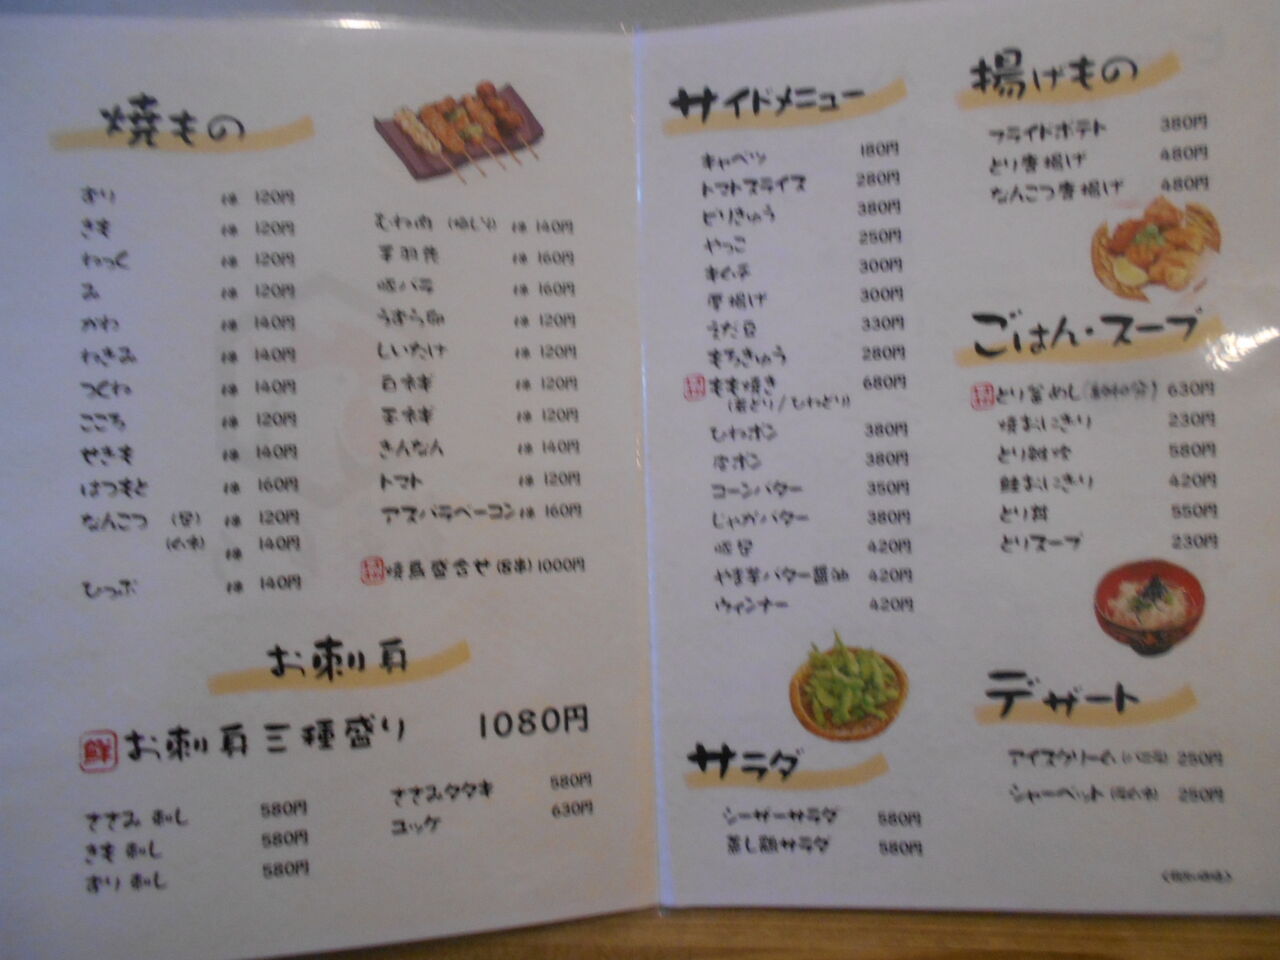 焼もの
ずり 1本 120円
きも 1本 120円
ねっく 1本 120円
み 1本 120円
かわ 1本 140円
わきみ 1本 140円
つくね 1本 140円
こころ 1本 120円
せぎも 1本 140円
はつもと 1本 160円
なんこつ 1本 120円
1本 140円
ひっぷ 1本 140円
むね肉 1本 140円
手羽先 1本 160円
豚バラ 1本 160円
うずら卵 1本 120円
しいたけ 1本 120円
白ネギ 1本 120円
1本 120円
ぎんなん 1本 140円
トマト 1本 120円
アスパラベーコン 1本 160円
焼鳥盛合せ(8串) 1000円
お刺身
鮮 お刺身三種盛り 1080円
ささみ刺し 580円
きも刺し 580円
ずり刺し 580円
ささみタタキ 580円
ユッケ 630円
サイドメニュー
キャベツ 180円
トマトスライス 280円
ピリきゅう 380円
やっこ 250円
キムチ 300円
厚揚げ 300円
えだ豆 330円
もろきゅう 280円
もも焼き 680円
(若どり/ひねどり)
ひねポン 380円
皮ポン 380円
コーンバター 350円
じゃがバター 380円
豚足 420円
やま芋バター醤油 420円
ウィンナー 420円
サラダ
シーザーサラダ 580円
蒸し鶏サラダ 580円
揚げもの
フライドポテト 380円
とり唐揚げ 480円
なんこつ唐揚げ 480円
ごはん・スープ
とり釜めし 630円
焼おにぎり 230円
とり雑炊 580円
鮭おにぎり 420円
とり丼 550円
とりスープ 230円
デザート
アイスクリーム(バニラ) 250円
シャーベット 250円